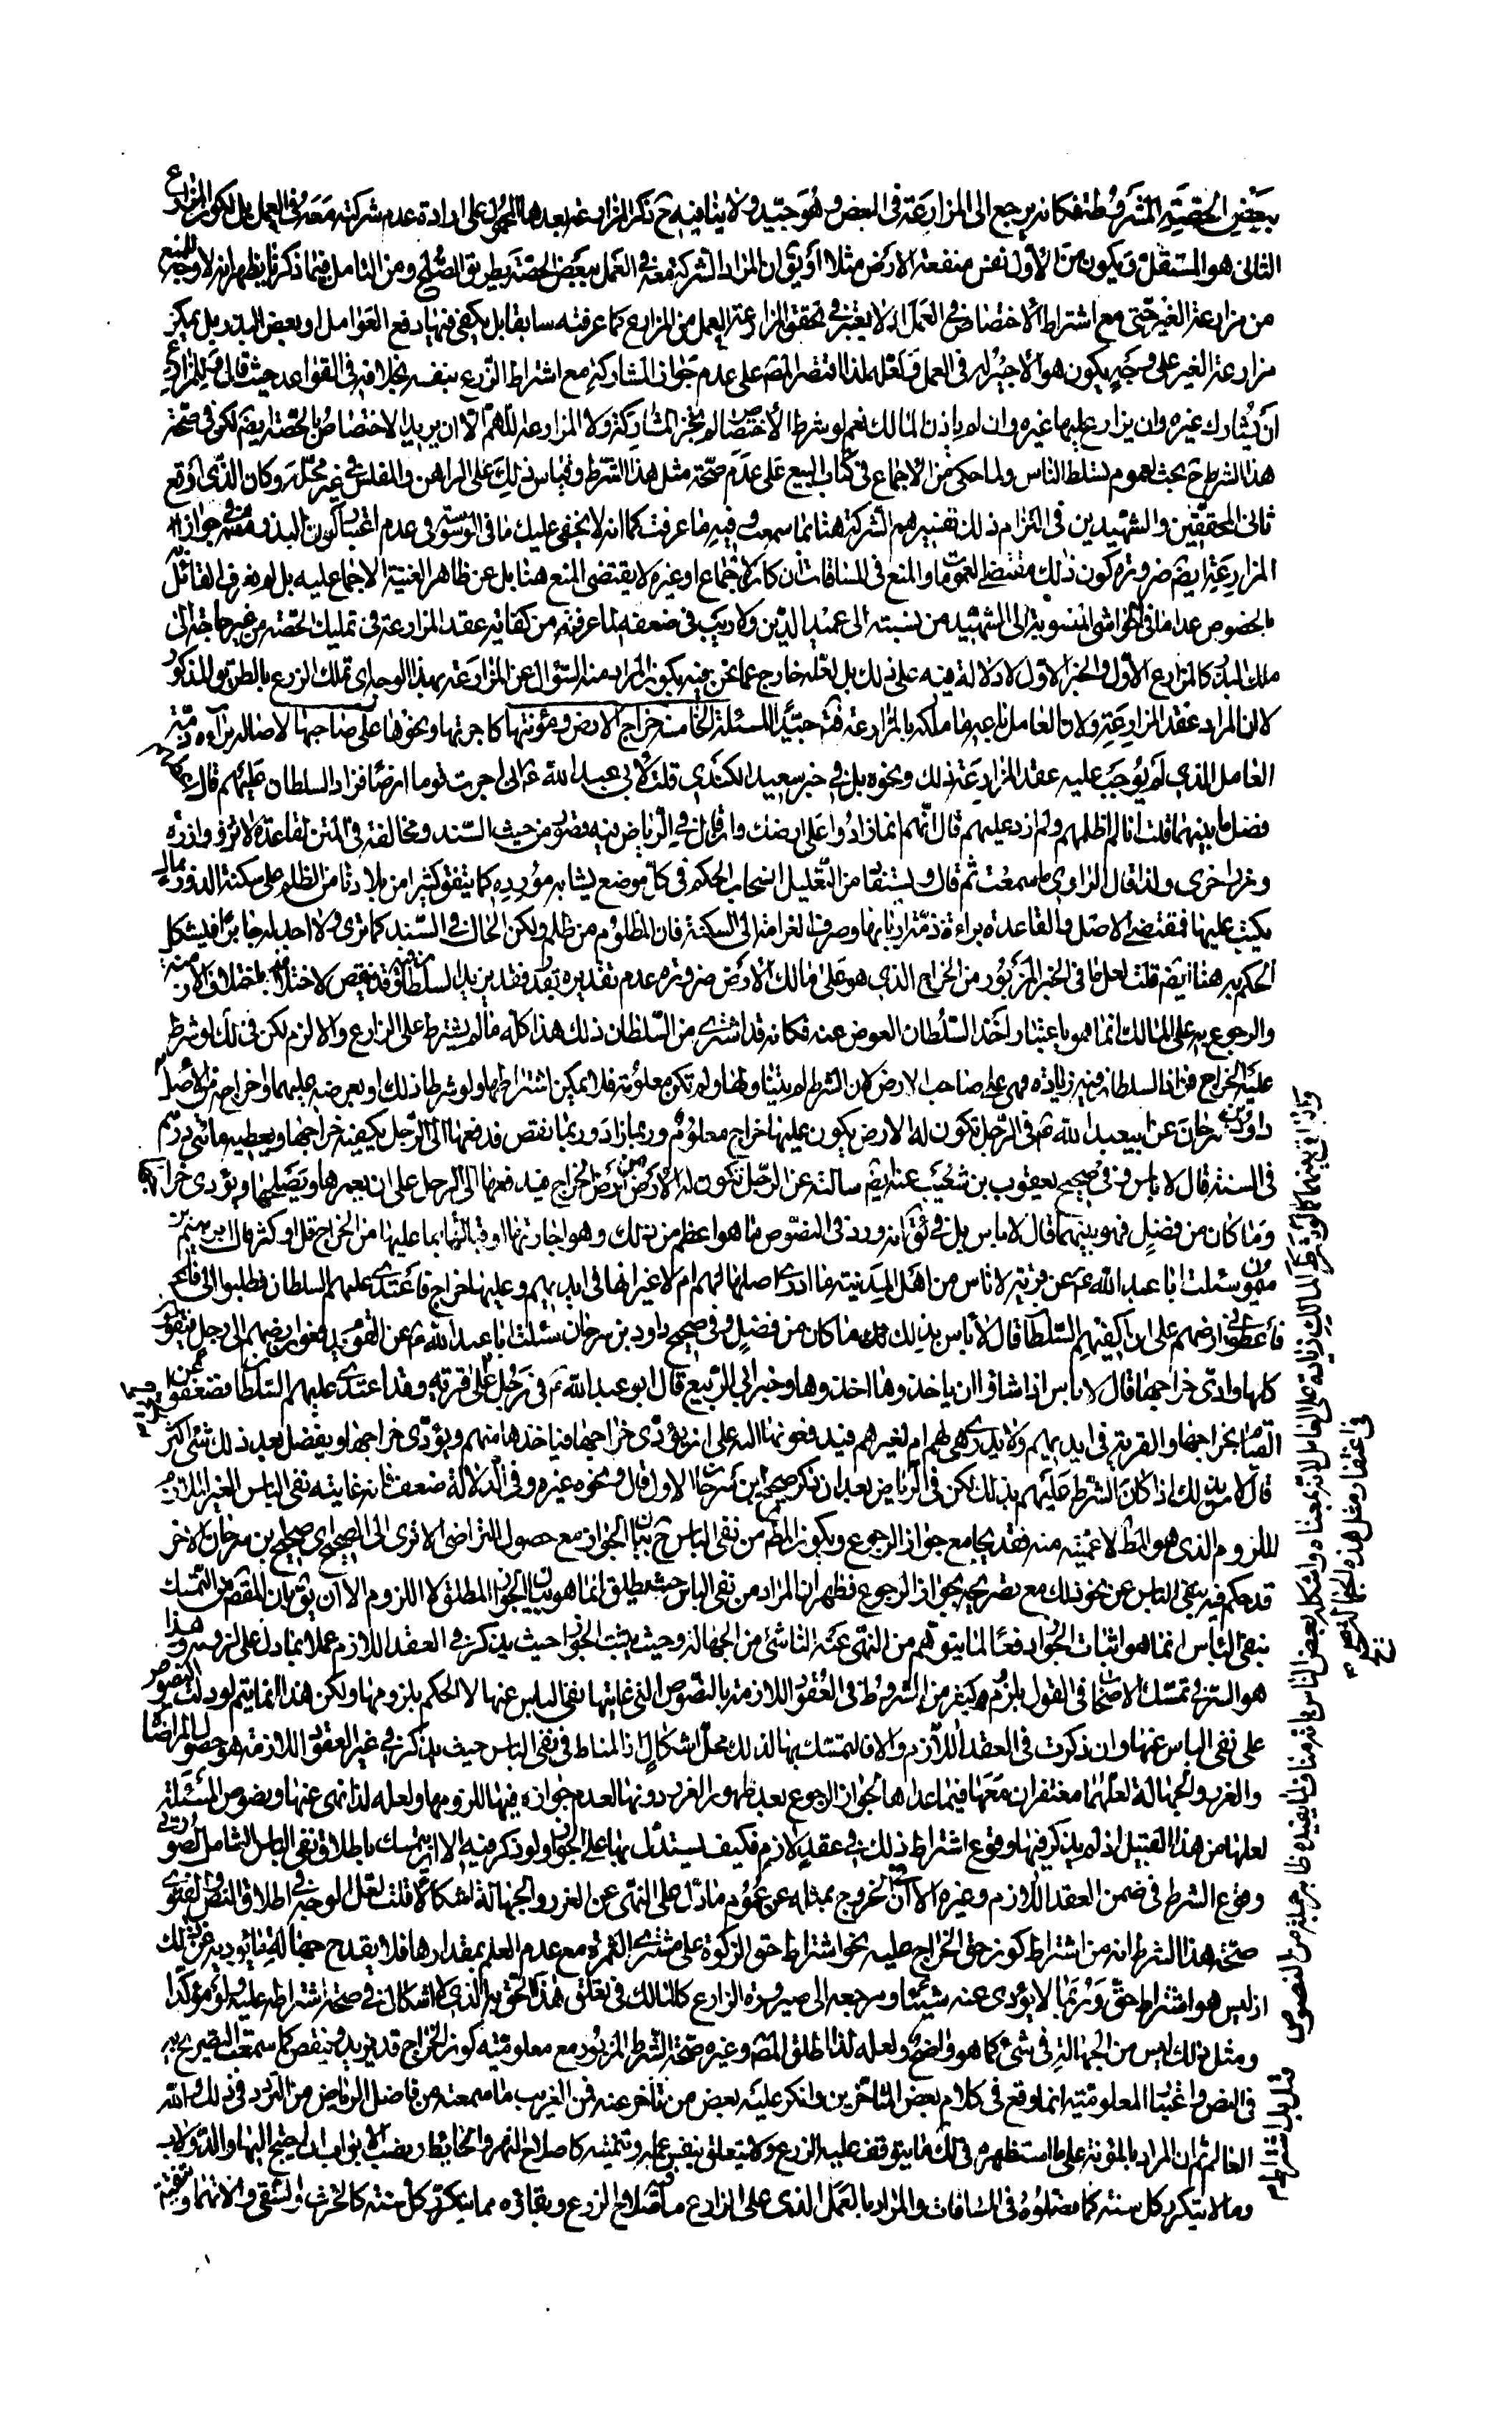 ببعض الحصة المشروطة فكانه يرجع الى المزارعة فى البعض وهو جيد ولا ينافيه ح ذكر المزارعة بعدها المحمول على ارادة عدم شركته معه فى العمل بل يكون المزارع
الثانى هو المستقل ويكون من الأول نفس منفعة الارض مثلا او يق ان المراد الشركة معه فى العمل ببعض الحصة بطريق الصلح ومن التامل فيما ذكرنا يظهر انه لا وجه للمنع
من مزارعة الغير حتى مع اشتراط الاختصاص فى العمل اذ لا يعتبر فى تحقق المزارعة العمل من المزارع كما عرفته سابقا بل يكفى فيها دفع العوامل او بعض البذر بل يمكن
مزارعة الغير على وجه يكون هو الأجير له فى العمل ولعله لذا اقتصر المص على عدم جواز المشاركة مع اشتراط الزرع بنفسه بخلافه فى القواعد حيث قال وللمزارع
أن يشارك غيره وان يزارع عليها غيره وان لم ياذن المالك نعم لو شرط الاختصاص لم يجز المشاركة ولا المزارعة اللهم الا ان يريد الاختصاص بالحصة ايضم لكن فى صحة
هذا الشرط ح بحث لعموم تسلط الناس ولما حكى من الاجماع فى كتاب البيع على عدم صحة مثل هذا الشرط وقياس ذلك على الراهن والمفلس فى غير محله وكان الذى اوقع
ثانى المحققين والشهيدين فى التزام ذلك تفسيرهم الشركة هنا بما سمعت وفيه ما عرفت كما انه لا يخفى عليك ما فى عدم اعتبار كون البذر منه فى جواز
المزارعة ايضم ضرورة كون ذلك مقتضى العمومات والمنع فى المساقات ان كان لاجماع او غيره لا يقتضى المنع هنا بل عن ظاهر الغنية الاجماع عليه بل لم نعرف القائل به
بالخصوص عدا ما فى الحواشى المنسوبة الى الشهيد من نسبته الى عميد الدين ولا ريب فى ضعفه لما عرفته من كفاية عقد المزارعة فى تمليك الحصة من غير حاجة الى
ملك البذر كالمزارع الأول والخبر الاول لا دلالة فيه على ذلك بل لعله خارج عما نحن فيه بكون المراد منه السؤال عن المزارعة بهذا الوجه اى تملك الزرع بالطريق المذكور
لا ان المراد عقد المزارعة ولا ان العامل باعه ما ملكه بالمزارعة فت جيدا المسئلة الخامسة خراج الارض ومؤنتها كاجرتها ونحوها على صاحبها لاصالة براءة ذمة
العامل الذى لم يوجب عليه عقد المزارعة ذلك ونحوه بل فى خبر سعيد الكندى قلت لابى عبد الله ع انى اجرت قوما ارضا فزاد السلطان عليهم قال اعطهم
فضل ما بينهما قلت انا لم اظلمهم ولم ازد عليهم قال انهم انما زادوا على ارضك وان قال فى الرياض فيه قصور من حيث السند ومخالفة فى المتن لقاعدة لا تزر وازرة
وزر اخرى ولذا قال الراوى ما سمعت ثم قال ويستفاد من التعليل انسحاب الحكم فى كل موضع يشابه مورده كما يتفق كثيرا من بلادنا من الظلم على سكنة الدور بمال
يكتب عليها فمقتضى الاصل والقاعدة براءة ذمة اربابها وصرف الغرامة الى السكنة فان المظلوم من ظلم ولكن الحال فى السند كما ترى ولا اجد له جابرا فيشكل
الحكم به هنا ايضم قلت لعل ما فى الخبر المزبور من الخراج الذى هو على مالك الارض ضرورة عدم تقديره بقدر فقد يزيد السلطان فيه وقد ينقص لاختلافه باختلاف الازمنة
والرجوع به على المالك انما هو باعتبار اخذ السلطان العوض عنه فكانه قد اشترى من السلطان ذلك هذا كله ما لم يشترط على الزارع والا لزم لكن فى لك لو شرط
عليه الخراج فزاد السلطان فيه زيادة فهى على صاحب الارض لان الشرط لم يتناولها ولم تكن معلومة فلا يمكن اشتراطها ولو شرطا ذلك او بعرضه عليهما واخراجه من الأصل
داود بن سرحان عن ابيعبد الله ع فى الرجل تكون له الارض يكون عليها خراج معلوم وربما زاد وربما نقص فدفعها الى الرجل يكفيه خراجها ويعطيه مائتى درهم
فى السنة قال لا باس وفى صحيح يعقوب بن شعيب عنه ايضم سالته عن الرجل تكون له الارض من ارض الخراج فيدفعها الى الرجل على ان يعمرها ويصلحها ويؤدى خراجها
وما كان من فضل فهو بينهما قال لا باس بل فى كره انه ورد فى النصوص ما هو اعظم من ذلك وهو اجارتها او قبالتها بما عليها من الخراج قل او كثر قال ابرهيم بن
ميمون سئلت ابا عبد الله ع عن قرية لاناس من اهل الذمة لا ادرى اصلها لهم ام لا غير انها فى ايديهم وعليها خراج فاعتدى عليهم السلطان فطلبوا الى
فاعطونى ارضهم على ان اكفيهم السلطان قال لا باس بذلك لك ما كان من فضل وفى صحيح داود بن سرحان سئلت ابا عبد الله ع عن القوم يدفعون ارضهم الى رجل فيقول
كلها وادى خراجها قال لا باس اذا شاؤا ان ياخذوها اخذوها وخبر ابى الربيع قال ابو عبد الله ع فى رجل على قرية وقد اعتدى عليهم السلطان فضعفوا عن
القيام بخراجها والقرية فى ايديهم ولا يدرى هى لهم ام لغيرهم فيدفعونها اليه على ان يؤدى خراجها فياخذها منهم ويؤدى خراجها ويفضل بعد ذلك شئ كثير
قال لا باس بذلك اذا كان الشرط عليهم بذلك لكن فى الرياض بعد ان ذكر صحيح ابن سرحان الاول قال ونحوه غيره وفى الدلالة ضعف فانه غايته نفى الباس الغير الملازم
للزوم الذى هو المط لاعميته منه فقد يجامع جواز الرجوع ويكون المفهم من نفى الباس ح بيان الجواز مع حصول التراضى الا ترى الى الصحيح اى صحيح بن سرحان الاخر
قد حكم فيه بنفى الباس عن نحو ذلك مع تصريحه بجواز الرجوع فظهر ان المراد من نفى الباس حيث يطلق انما هو بيان الجواز المطلق لا اللزوم الا ان يق بان المقصود من التمسك
بنفى الباس انما هو اثبات الجواز دفعا لما يتوهم من النهى عنه الناشئ من الجهالة وحيث يثبت الجواز حيث يذكر فى العقد اللازم عملا بما دل على لزومه وهذا
هو السر فى تمسك الاصحاب فى القول بلزوم كثير من الشروط فى العقود اللازمة بالنصوص التى غايتها نفى الباس عنها لا الحكم بلزومها ولكن هذا انما يتم لو دلت النصوص
على نفى الباس عنها وان ذكرت فى العقد اللازم والا فالتمسك بها لذلك محل اشكال اذ المناط فى نفى الباس حيث يذكر فى غير العقود اللازمة هو حصول المراضاة
والغرر والجهالة لعلهما مغتفران معها فيما عداها لجواز الرجوع بعد ظهور الغرر دونها لعدم جوازه فيها للزومها ولعله لذا نهى عنها ونصوص المسئلة
لعلها من هذا القبيل اذ لم يذكر فيها وقوع اشتراط ذلك فى عقد لازم فكيف يستدل بها على الجواز ولو ذكر فيه الا ان يتمسك باطلاق نفى الباس الشامل لصورتى
وقوع الشرط فى ضمن العقد اللازم وغيره الا ان الخروج بمثله عن عموم ما دل على النهى عن الغرر والجهالة اشكالا قلت لعل الوجه فى اطلاق النص والفتوى
صحة هذا الشرط انه من اشتراط كون حق الخراج عليه نحو اشتراط حق الزكوة على مشترى الثمرة مع عدم العلم بمقدارها فلا يقدح جهالة ما يؤديه عن ذلك
اذ ليس هو اشتراط حق وربما لا يؤدى عنه شيئا ومرجعه الى صيرورة الزارع كالمالك فى تعلق هذا الحق به الذى لا اشكال فى صحة اشتراطه عليه ولو مؤكدا
ومثل ذلك ليس من الجهالة فى شئ كما هو واضح ولعله لذا اطلق المص وغيره صحة الشرط المزبور مع معلومية كون الخراج قد يزيد وينقص كما سمعت التصريح به
فى النص واعتبار المعلومية انما وقع فى كلام بعض المتاخرين وانكر عليه بعض من تاخر عنه فمن الغريب ما سمعته من فاضل الرياض من التردد فى ذلك والله
العالم ثم ان المراد بالمؤنة على ما استظهره فى لك ما يتوقف عليه الزرع ولا يتعلق بنفس عمله وتنميته كاصلاح النهر والحائط ونصب الابواب ان احتيج اليها والدولاب
وما لا يتكرر كل سنة كما فصلوه فى المساقات والمراد بالعمل الذى على الزارع ما فيه صلاح الزرع وبقاؤه مما يتكرر كل سنة كالحرث والسقى والاتهما وتنقية